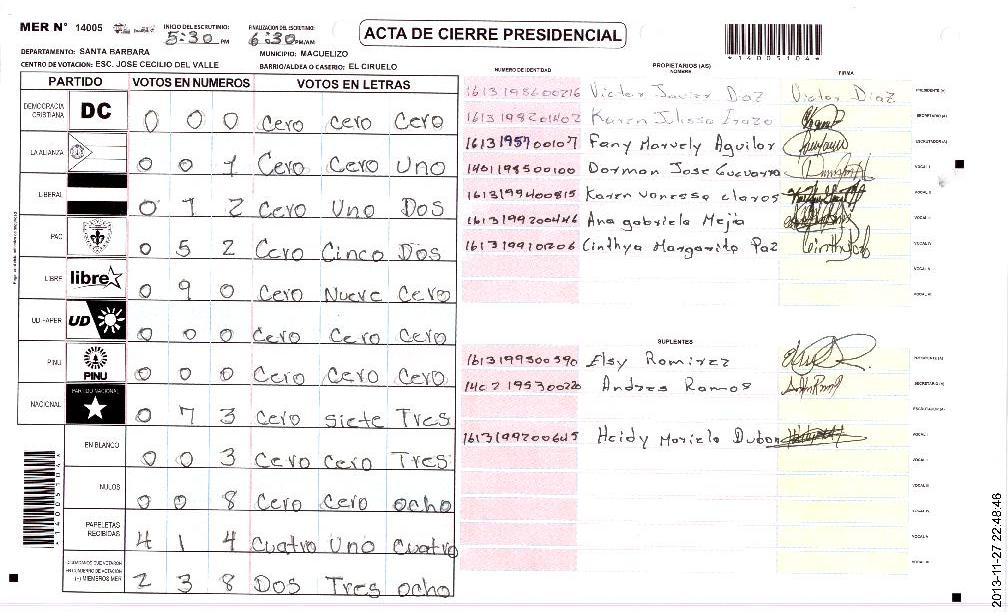 MER N° 14005 INICIO DEL ESCRUTINIO: 5:30 PM FINALIZACION DEL ESCRUTINIO: 6:30 PM/AM
ACTA DE CIERRE PRESIDENCIAL
*14005104*
DEPARTAMENTO: SANTA BARBARA MUNICIPIO: MACUELIZO
CENTRO DE VOTACION: ESC. JOSE CECILIO DEL VALLE BARRIO/ALDEA O CASERIO: EL CIRUELO
PARTIDO VOTOS EN NUMEROS VOTOS EN LETRAS
DEMOCRACIA CRISTIANA DC 0 0 0 Cero cero Cero
LA ALIANZA 0 0 1 Cero Cero Uno
LIBERAL 0 1 2 Cero Uno Dos
PAC 0 5 2 Cero Cinco Dos
LIBRE libre 0 9 0 Cero Nueve Cero
UD-FAPER UD 0 0 0 Cero Cero Cero
PINU PINU 0 0 0 Cero Cero Cero
NACIONAL PARTIDO NACIONAL 0 7 3 Cero siete Tres
EN BLANCO 0 0 3 Cero Cero Tres
NULOS 0 0 8 Cero Cero ocho
PAPELETAS RECIBIDAS 4 1 4 Cuatro Uno Cuatro
CIUDADANOS QUE VOTARON EN CUADERNO DE VOTACION (+) MIEMBROS MER 2 3 8 Dos Tres ocho
*14005104*
NUMERO DE IDENTIDAD PROPIETARIOS (AS) NOMBRE FIRMA
1613198600216 Victor Javier Diaz Victor Diaz PRESIDENTE (A)
1613198201402 Karen Julissa SECRETARIO (A)
1613195700107 Fany Marvely Aguilar ESCRUTADOR (A)
1401198500100 Dorman Jose Guevarra VOCAL I
1613199400815 Karen vanessa claros VOCAL II
1613199200446 Ana gabriela Mejia VOCAL III
161319910206 Cinthya Margarita Paz VOCAL IV
VOCAL V
VOCAL VI
SUPLENTES
1613199500590 Elsy Romirez PRESIDENTE (A)
1402195300220 Andres Ramos SECRETARIO (A)
ESCRUTADOR (A)
1613199200645 Heidy Mariela Dubon VOCAL I
VOCAL II
VOCAL III
VOCAL IV
VOCAL V
VOCAL VI
2013-11-27 22:48:46